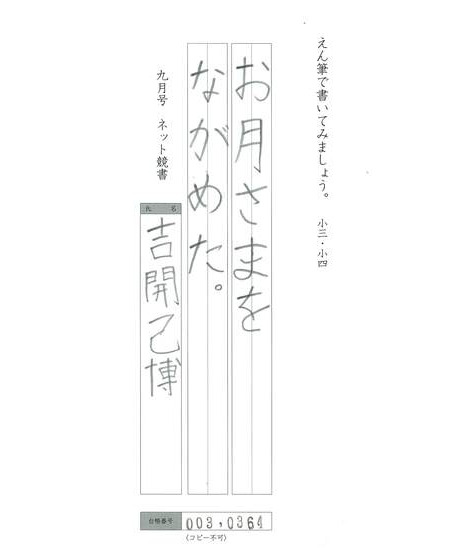 えん筆で書いてみましょう。 小三・小四
お月さまを
ながめた。
九月号 ネット競書
氏名
吉開己博
台帳番号 003,0364
(コピー不可)